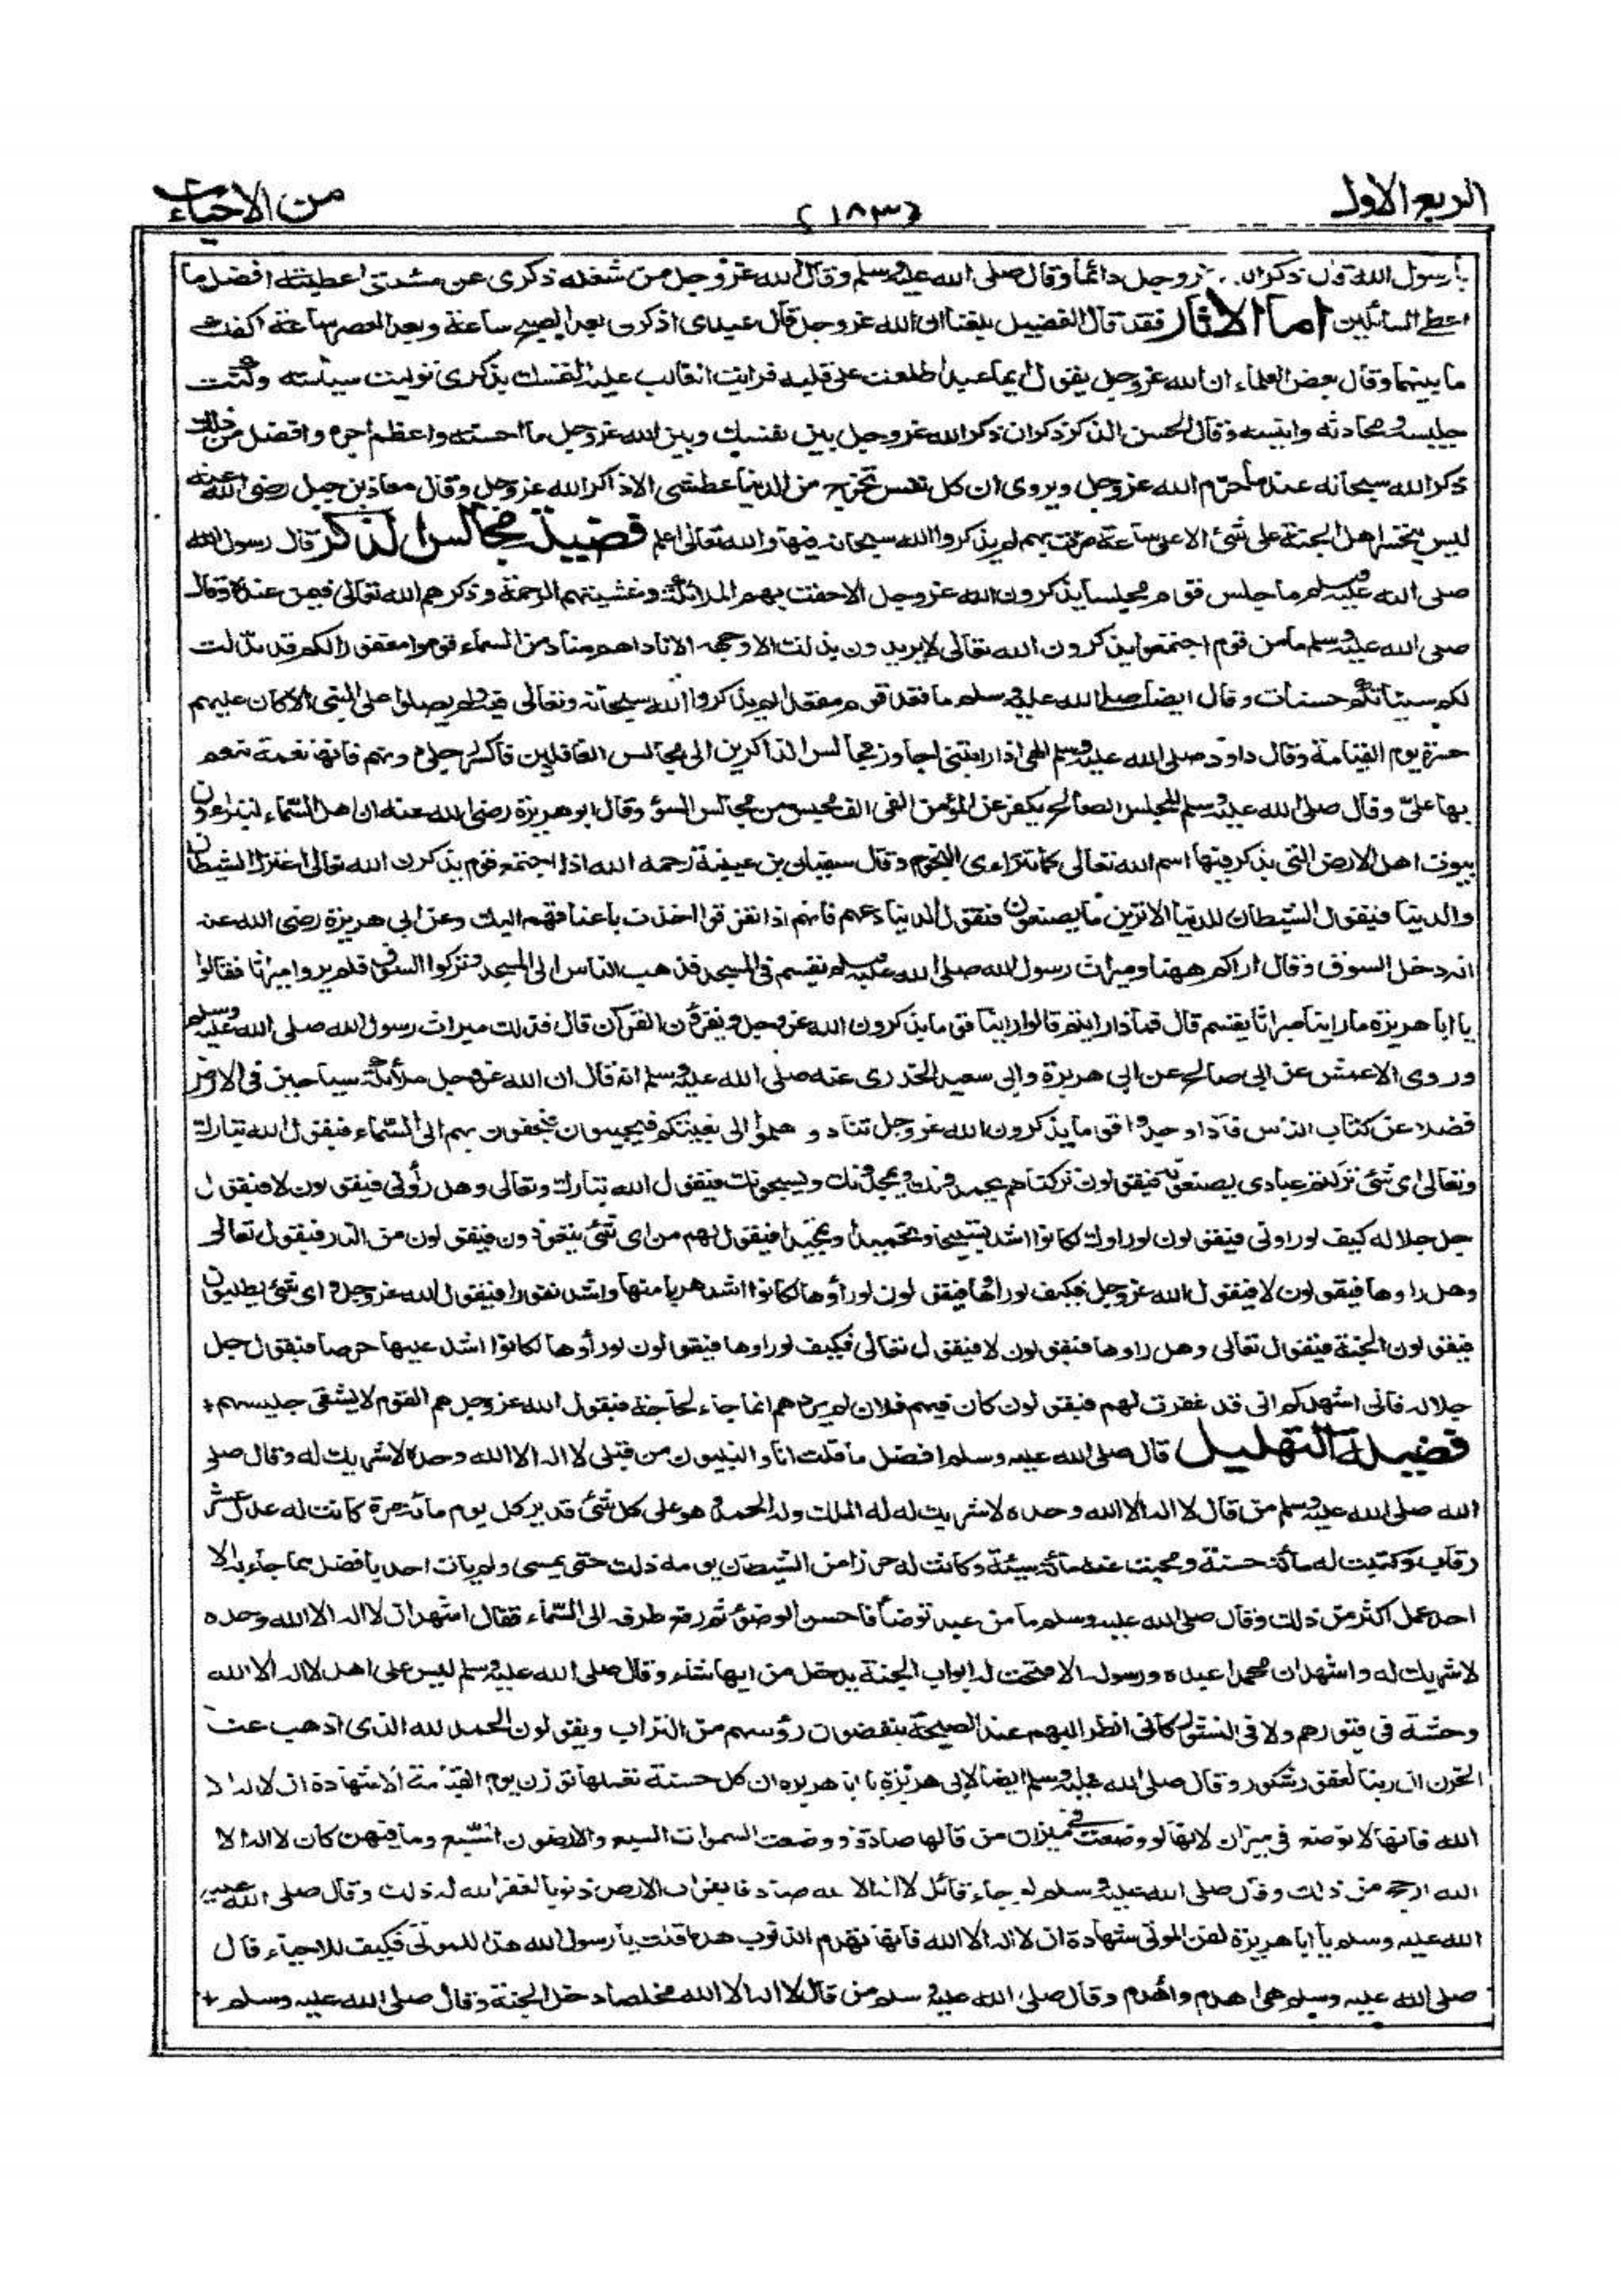 الربع الاول
(١٨٣)
من الاحياء
يا رسول الله قال ذكر الله عز وجل دائما وقال صلى الله عليه وسلم وقال الله عز وجل من شغله ذكرى عن مسئلتى اعطيته افضل ما
اعطى السائلين اما الاثار فقد قال الفضيل بلغنا ان الله عز وجل قال عبدى اذكرنى بعد الصبح ساعة وبعد العصر ساعة اكفك
ما بينهما وقال بعض العلماء ان الله عز وجل يقول ايما عبد اطلعت على قلبه فرايت الغالب عليه التمسك بذكرى توليت سياسته وكنت
جليسه ومحادثه وانيسه وقال الحسن الذكر ذكران ذكر الله عز وجل بين نفسك وبين الله عز وجل ما احسنه واعظم اجره وافضل من ذلك
ذكر الله سبحانه عند ما حرم الله عز وجل ويروى ان كل نفس تخرج من الدنيا عطشى الا ذاكر الله عز وجل وقال معاذ بن جبل رضى الله عنه
ليس يتحسر اهل الجنة على شئ الا على ساعة مرت بهم لم يذكروا الله سبحانه فيها والله تعالى اعلم فضيلة مجالس الذكر قال رسول الله
صلى الله عليه وسلم ما جلس قوم مجلسا يذكرون الله عز وجل الا حفت بهم الملائكة وغشيتهم الرحمة وذكرهم الله تعالى فيمن عنده وقال
صلى الله عليه وسلم ما من قوم اجتمعوا يذكرون الله تعالى لا يريدون بذلك الا وجهه الا ناداهم مناد من السماء قوموا مغفورا لكم قد بدلت
لكم سيئاتكم حسنات وقال ايضا صلى الله عليه وسلم ما قعد قوم مقعدا لم يذكروا الله سبحانه وتعالى فيه ولم يصلوا على النبى الا كان عليهم
حسرة يوم القيامة وقال داود صلى الله عليه وسلم الهى اذا رايتنى اجاوز مجالس الذاكرين الى مجالس الغافلين فاكسر رجلى دونهم فانها نعمة تنعم
بها علىّ وقال صلى الله عليه وسلم المجلس الصالح يكفر عن المؤمن الفى الف مجلس من مجالس السوء وقال ابو هريرة رضى الله عنه ان اهل السماء ليتراءون
بيوت اهل الارض التى يذكر فيها اسم الله تعالى كما تتراءى النجوم وقال سفيان بن عيينة رحمه الله اذا اجتمع قوم يذكرون الله تعالى اعتزل الشيطان
والدنيا فيقول الشيطان للدنيا الا ترين ما يصنعون فتقول الدنيا دعهم فانهم اذا تفرقوا اخذت باعناقهم اليك وعن ابى هريرة رضى الله عنه
انه دخل السوق وقال اراكم ههنا وميراث رسول الله صلى الله عليه وسلم يقسم فى المسجد فذهب الناس الى المسجد وتركوا السوق فلم يروا ميراثا فقالوا
يا ابا هريرة ما راينا ميراثا يقسم قال فماذا رايتم قالوا راينا قوما يذكرون الله عز وجل ويقرؤن القرآن قال فذلك ميراث رسول الله صلى الله عليه وسلم
وروى الاعمش عن ابى صالح عن ابى هريرة وابى سعيد الخدرى عنه صلى الله عليه وسلم انه قال ان الله عز وجل ملائكة سياحين فى الارض
فضلا عن كتاب الناس فاذا وجدوا قوما يذكرون الله عز وجل تنادوا هلموا الى بغيتكم فيجيبون فيحفون بهم الى السماء فيقول الله تبارك
وتعالى اى شئ تركتم عبادى يصنعونه فيقولون تركناهم يحمدونك ويمجدونك ويسبحونك فيقول الله تبارك وتعالى وهل رأونى فيقولون لا فيقول
جل جلاله كيف لو راونى فيقولون لو راوك لكانوا اشد تسبيحا وتحميدا وتمجيدا فيقول لهم من اى شئ يتعوذون فيقولون من النار فيقول تعالى
وهل راوها فيقولون لا فيقول الله عز وجل فكيف لو راوها فيقولون لو رأوها لكانوا اشد هربا منها واشد نفورا فيقول الله عز وجل واى شئ يطلبون
فيقولون الجنة فيقول تعالى وهل راوها فيقولون لا فيقول تعالى فكيف لو راوها فيقولون لو رأوها لكانوا اشد عليها حرصا فيقول جل
جلاله فانى اشهدكم انى قد غفرت لهم فيقولون كان فيهم فلان لم يردهم انما جاء لحاجة فيقول الله عز وجل هم القوم لا يشقى جليسهم +
فضيلة التهليل قال صلى الله عليه وسلم افضل ما قلت انا والنبيون من قبلى لا اله الا الله وحده لا شريك له وقال صلى
الله صلى الله عليه وسلم من قال لا اله الا الله وحده لا شريك له له الملك وله الحمد وهو على كل شئ قدير كل يوم مائة مرة كانت له عدل عشر
رقاب وكتبت له مائة حسنة ومحيت عنه مائة سيئة وكانت له حرزا من الشيطان يومه ذلك حتى يمسى ولم يات احد بافضل مما جاء به الا
احد عمل اكثر من ذلك وقال صلى الله عليه وسلم ما من عبد توضأ فاحسن الوضوء ثم رفع طرفه الى السماء فقال اشهد ان لا اله الا الله وحده
لا شريك له واشهد ان محمدا عبده ورسوله الا فتحت له ابواب الجنة يدخل من ايها شاء وقال صلى الله عليه وسلم ليس على اهل لا اله الا الله
وحشة فى قبورهم ولا فى النشور كانى انظر اليهم عند الصيحة ينفضون رؤسهم من التراب ويقولون الحمد لله الذى اذهب عنا
الحزن ان ربنا لغفور شكور وقال صلى الله عليه وسلم ايضا لابى هريرة يا ابا هريره ان كل حسنة تعملها توزن يوم القيامة الا شهادة ان لا اله الا
الله فانها لا توضع فى ميزان لانها لو وضعت فى ميزان من قالها صادقا ووضعت السموات السبع والارضون السبع وما فيهن كان لا اله الا
الله ارجح من ذلك وقال صلى الله عليه وسلم لو جاء قائل لا اله الا الله صادقا بقراب الارض ذنوبا لغفر الله له ذلك وقال صلى الله عليه
الله عليه وسلم يا ابا هريرة لقن الموتى شهادة ان لا اله الا الله فانها تهدم الذنوب هدما قلت يا رسول الله هذا للموتى فكيف للاحياء قال
صلى الله عليه وسلم هى اهدم واهدم وقال صلى الله عليه وسلم من قال لا اله الا الله مخلصا دخل الجنة وقال صلى الله عليه وسلم +